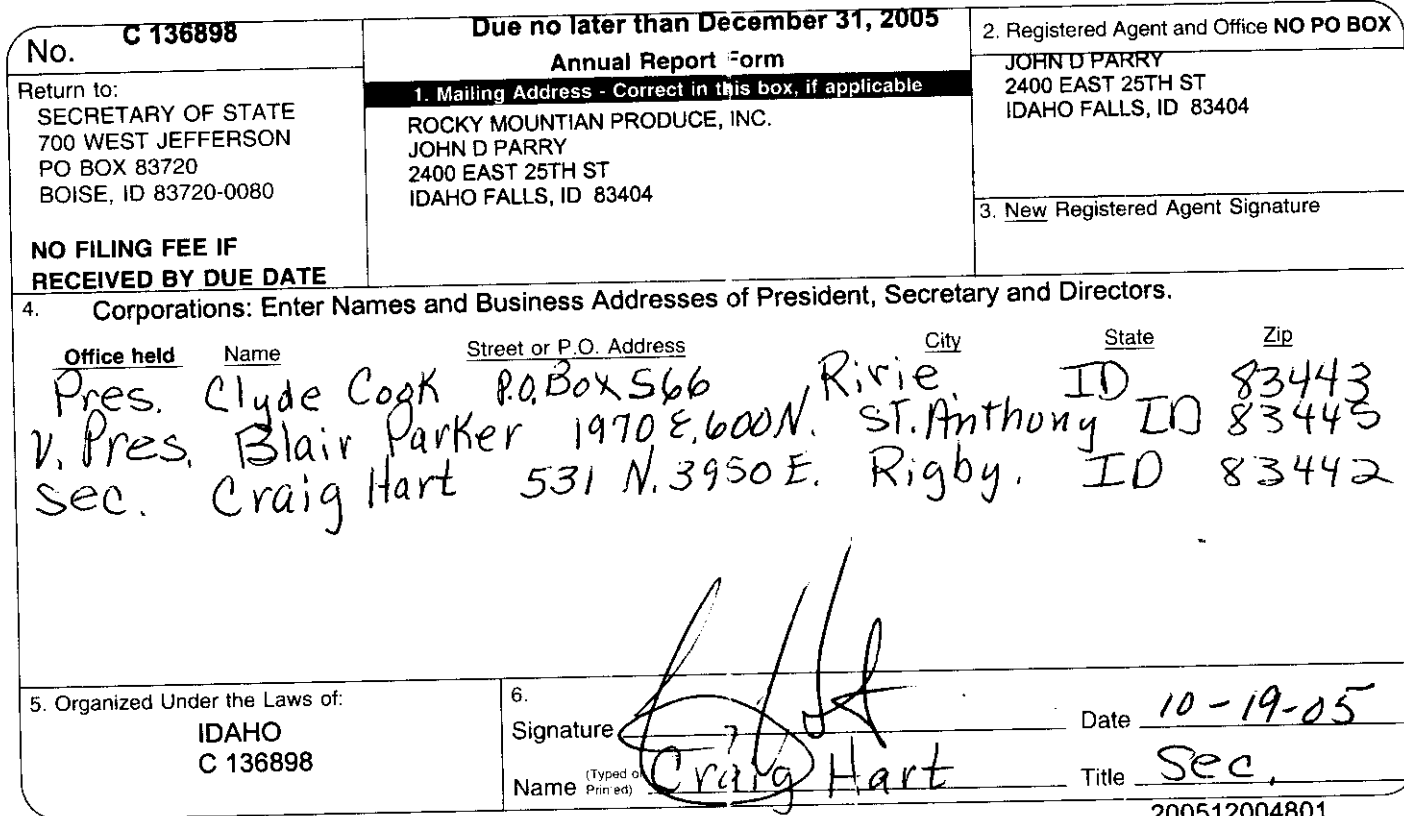 No. C 136898
Return to:
SECRETARY OF STATE
700 WEST JEFFERSON
PO BOX 83720
BOISE, ID 83720-0080
NO FILING FEE IF
RECEIVED BY DUE DATE
Due no later than December 31, 2005
Annual Report Form
1. Mailing Address - Correct in this box, if applicable
ROCKY MOUNTIAN PRODUCE, INC.
JOHN D PARRY
2400 EAST 25TH ST
IDAHO FALLS, ID 83404
2. Registered Agent and Office NO PO BOX
JOHN D PARRY
2400 EAST 25TH ST
IDAHO FALLS, ID 83404
3. New Registered Agent Signature
4. Corporations: Enter Names and Business Addresses of President, Secretary and Directors.
Office held Name Street or P.O. Address City State Zip
Pres. Clyde Cook P.O. Box 566 Ririe ID 83443
V. Pres. Blair Parker 1970 E. 600 N. ST. Anthony ID 83445
Sec. Craig Hart 531 N. 3950 E. Rigby. ID 83442
5. Organized Under the Laws of:
IDAHO
C 136898
6.
Signature
Date 10-19-05
Name (Typed or Printed) Craig Hart
Title Sec.
200512004801